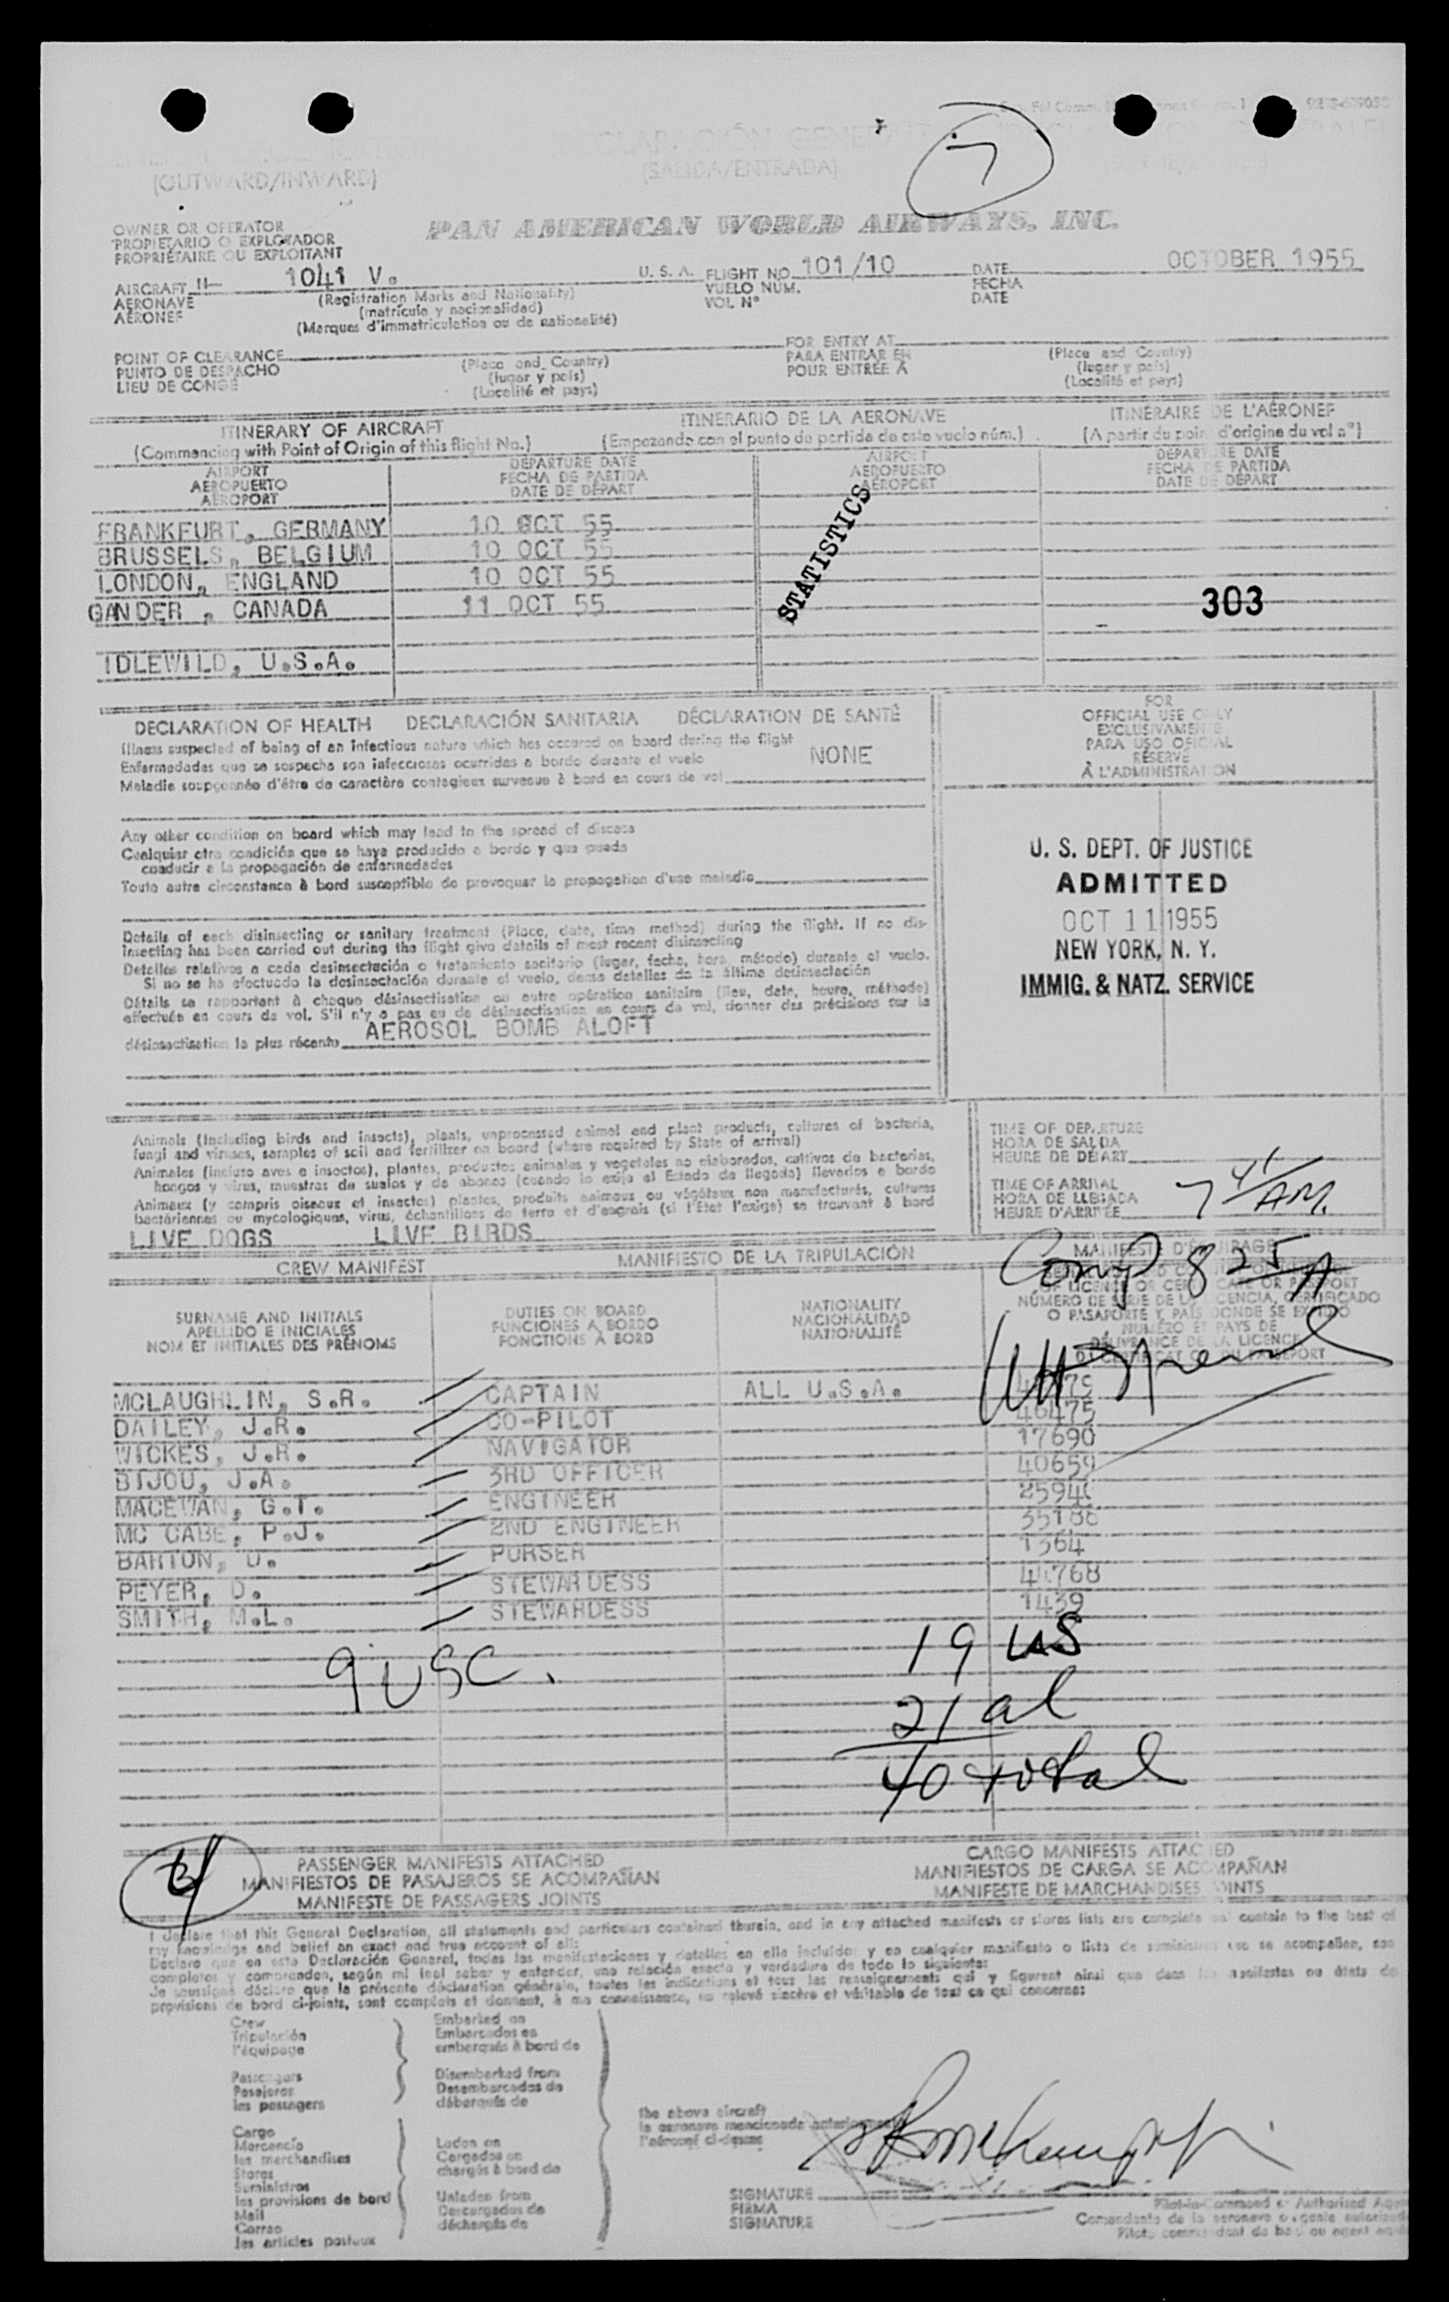 (OUTWARD/INWARD)
(SALIDA/ENTRADA)
7
OWNER OR OPERATOR
PROPIETARIO O EXPLOTADOR
PROPRIÉTAIRE OU EXPLOITANT
PAN AMERICAN WORLD AIRWAYS, INC.
AIRCRAFT N- 1041 V. U. S. A. FLIGHT NO. 101/10 DATE OCTOBER 1955
AERONAVE (Registration Marks and Nationality) VUELO NUM. FECHA
AÉRONEF (matrícula y nacionalidad) VOL N° DATE
(Marques d'immatriculation ou de nationalité)
POINT OF CLEARANCE (Place and Country) FOR ENTRY AT (Place and Country)
PUNTO DE DESPACHO (lugar y país) PARA ENTRAR EN (lugar y país)
LIEU DE CONGÉ (Localité et pays) POUR ENTRÉE A (Localité et pays)
ITINERARY OF AIRCRAFT ITINERARIO DE LA AERONAVE ITINÉRAIRE DE L'AÉRONEF
(Commencing with Point of Origin of this flight No.) (Empezando con el punto de partida de este vuelo núm.) (A partir du point d'origine du vol n°)
AIRPORT DEPARTURE DATE AIRPORT DEPARTURE DATE
AEROPUERTO FECHA DE PARTIDA AEROPUERTO FECHA DE PARTIDA
AÉROPORT DATE DE DÉPART AÉROPORT DATE DE DÉPART
FRANKFURT, GERMANY 10 OCT 55
BRUSSELS, BELGIUM 10 OCT 55
LONDON, ENGLAND 10 OCT 55
GANDER, CANADA 11 OCT 55
IDLEWILD, U.S.A.
STATISTICS
303
DECLARATION OF HEALTH DECLARACIÓN SANITARIA DÉCLARATION DE SANTÉ
Illness suspected of being of an infectious nature which has occured on board during the flight
Enfermedades que se sospecha son infecciosas ocurridas a bordo durante el vuelo
Maladie soupçonnée d'être de caractère contagieux survenue à bord en cours de vol
NONE
FOR
OFFICIAL USE ONLY
EXCLUSIVAMENTE
PARA USO OFICIAL
RÉSERVÉ
À L'ADMINISTRATION
Any other condition on board which may lead to the spread of disease
Cualquier otra condición que se haya producido a bordo y que pueda
conducir a la propagación de enfermedades
Toute autre circonstance à bord susceptible de provoquer la propagation d'une maladie
U. S. DEPT. OF JUSTICE
ADMITTED
OCT 11 1955
NEW YORK, N. Y.
IMMIG. & NATZ. SERVICE
Details of each disinsecting or sanitary treatment (Place, date, time method) during the flight. If no dis-
insecting has been carried out during the flight give details of most recent disinsecting
Detalles relativos a cada desinsectación o tratamiento sanitario (lugar, fecha, hora, método) durante el vuelo.
Si no se ha efectuado la desinsectación durante el vuelo, dense detalles de la última desinsectación
Détails se rapportant à chaque désinsectisation ou autre opération sanitaire (lieu, date, heure, méthode)
effectuée en cours de vol. S'il n'y a pas eu de désinsectisation en cours de vol, donner des précisions sur la
désinsectisation la plus récente AEROSOL BOMB ALOFT
Animals (including birds and insects), plants, unprocessed animal and plant products, cultures of bacteria,
fungi and viruses, samples of soil and fertilizer on board (where required by State of arrival)
Animales (incluso aves e insectos), plantas, productos animales y vegetales no elaborados, cultivos de bacterias,
hongos y virus, muestras de suelos y de abonos (cuando lo exija el Estado de llegada) llevados a bordo
Animaux (y compris oiseaux et insectes) plantes, produits animaux ou végétaux non manufacturés, cultures
bactériennes ou mycologiques, virus, échantillons de terre et d'engrais (si l'État l'exige) se trouvant à bord
LIVE DOGS LIVE BIRDS
TIME OF DEPARTURE
HORA DE SALIDA
HEURE DE DÉPART
TIME OF ARRIVAL
HORA DE LLEGADA
HEURE D'ARRIVÉE
7 41 AM.
Comp 8 25 A
CREW MANIFEST MANIFIESTO DE LA TRIPULACIÓN MANIFESTE D'ÉQUIPAGE
SURNAME AND INITIALS DUTIES ON BOARD NATIONALITY
APELLIDO E INICIALES FUNCIONES A BORDO NACIONALIDAD
NOM ET INITIALES DES PRÉNOMS FONCTIONS À BORD NATIONALITÉ
NÚMERO DE SERIE DE LA LICENCIA, CERTIFICADO
O PASAPORTE Y PAÍS DONDE SE EXPIDIÓ
NUMÉRO ET PAYS DE
DÉLIVRANCE DE LA LICENCE
MCLAUGHLIN, S.R. CAPTAIN ALL U.S.A.
DAILEY, J.R. CO-PILOT 40475
WICKES, J.R. NAVIGATOR 17690
BIJOU, J.A. 3RD OFFICER 40659
MACEWAN, G.T. ENGINEER
MC CABE, P.J. 2ND ENGINEER
BARTON, D. PURSER 1364
PEYER, D. STEWARDESS
SMITH, M.L. STEWARDESS 1439
9 USC.
19 US
21 al
40 total
PASSENGER MANIFESTS ATTACHED CARGO MANIFESTS ATTACHED
MANIFIESTOS DE PASAJEROS SE ACOMPAÑAN MANIFIESTOS DE CARGA SE ACOMPAÑAN
MANIFESTE DE PASSAGERS JOINTS MANIFESTE DE MARCHANDISES JOINTS
I declare that this General Declaration, all statements and particulars contained therein, and in any attached manifests or stores lists are complete and contain to the best of
my knowledge and belief an exact and true account of all:
Declaro que en esta Declaración General, todas las manifestaciones y detalles en ella incluidos y en cualquier manifiesto o lista de suministros que se acompañen, son
completos y comprenden, según mi leal saber y entender, una relación exacta y verdadera de todo lo siguiente:
Je soussigné déclare que la présente déclaration générale, toutes les indications et tous les renseignements qui y figurent ainsi que dans les manifestes ou états de
provisions de bord ci-joints, sont complets et donnent, à ma connaissance, un relevé sincère et véritable de tout ce qui concerne:
Crew Embarked on
Tripulación Embarcados en
l'équipage embarqués à bord de
Passengers Disembarked from
Pasajeros Desembarcados de
les passagers débarqués de
the above aircraft
la aeronave mencionada anteriormente
l'aéronef ci-dessus
Cargo
Mercancía Laden on
les marchandises Cargados en
Stores chargés à bord de
Suministros
les provisions de bord Unladen from
Mail Descargados de
Correo déchargés de
les articles postaux
SIGNATURE
FIRMA
SIGNATURE
Pilot-in-Command or Authorized Agent
Comandante de la aeronave o agente autorizado